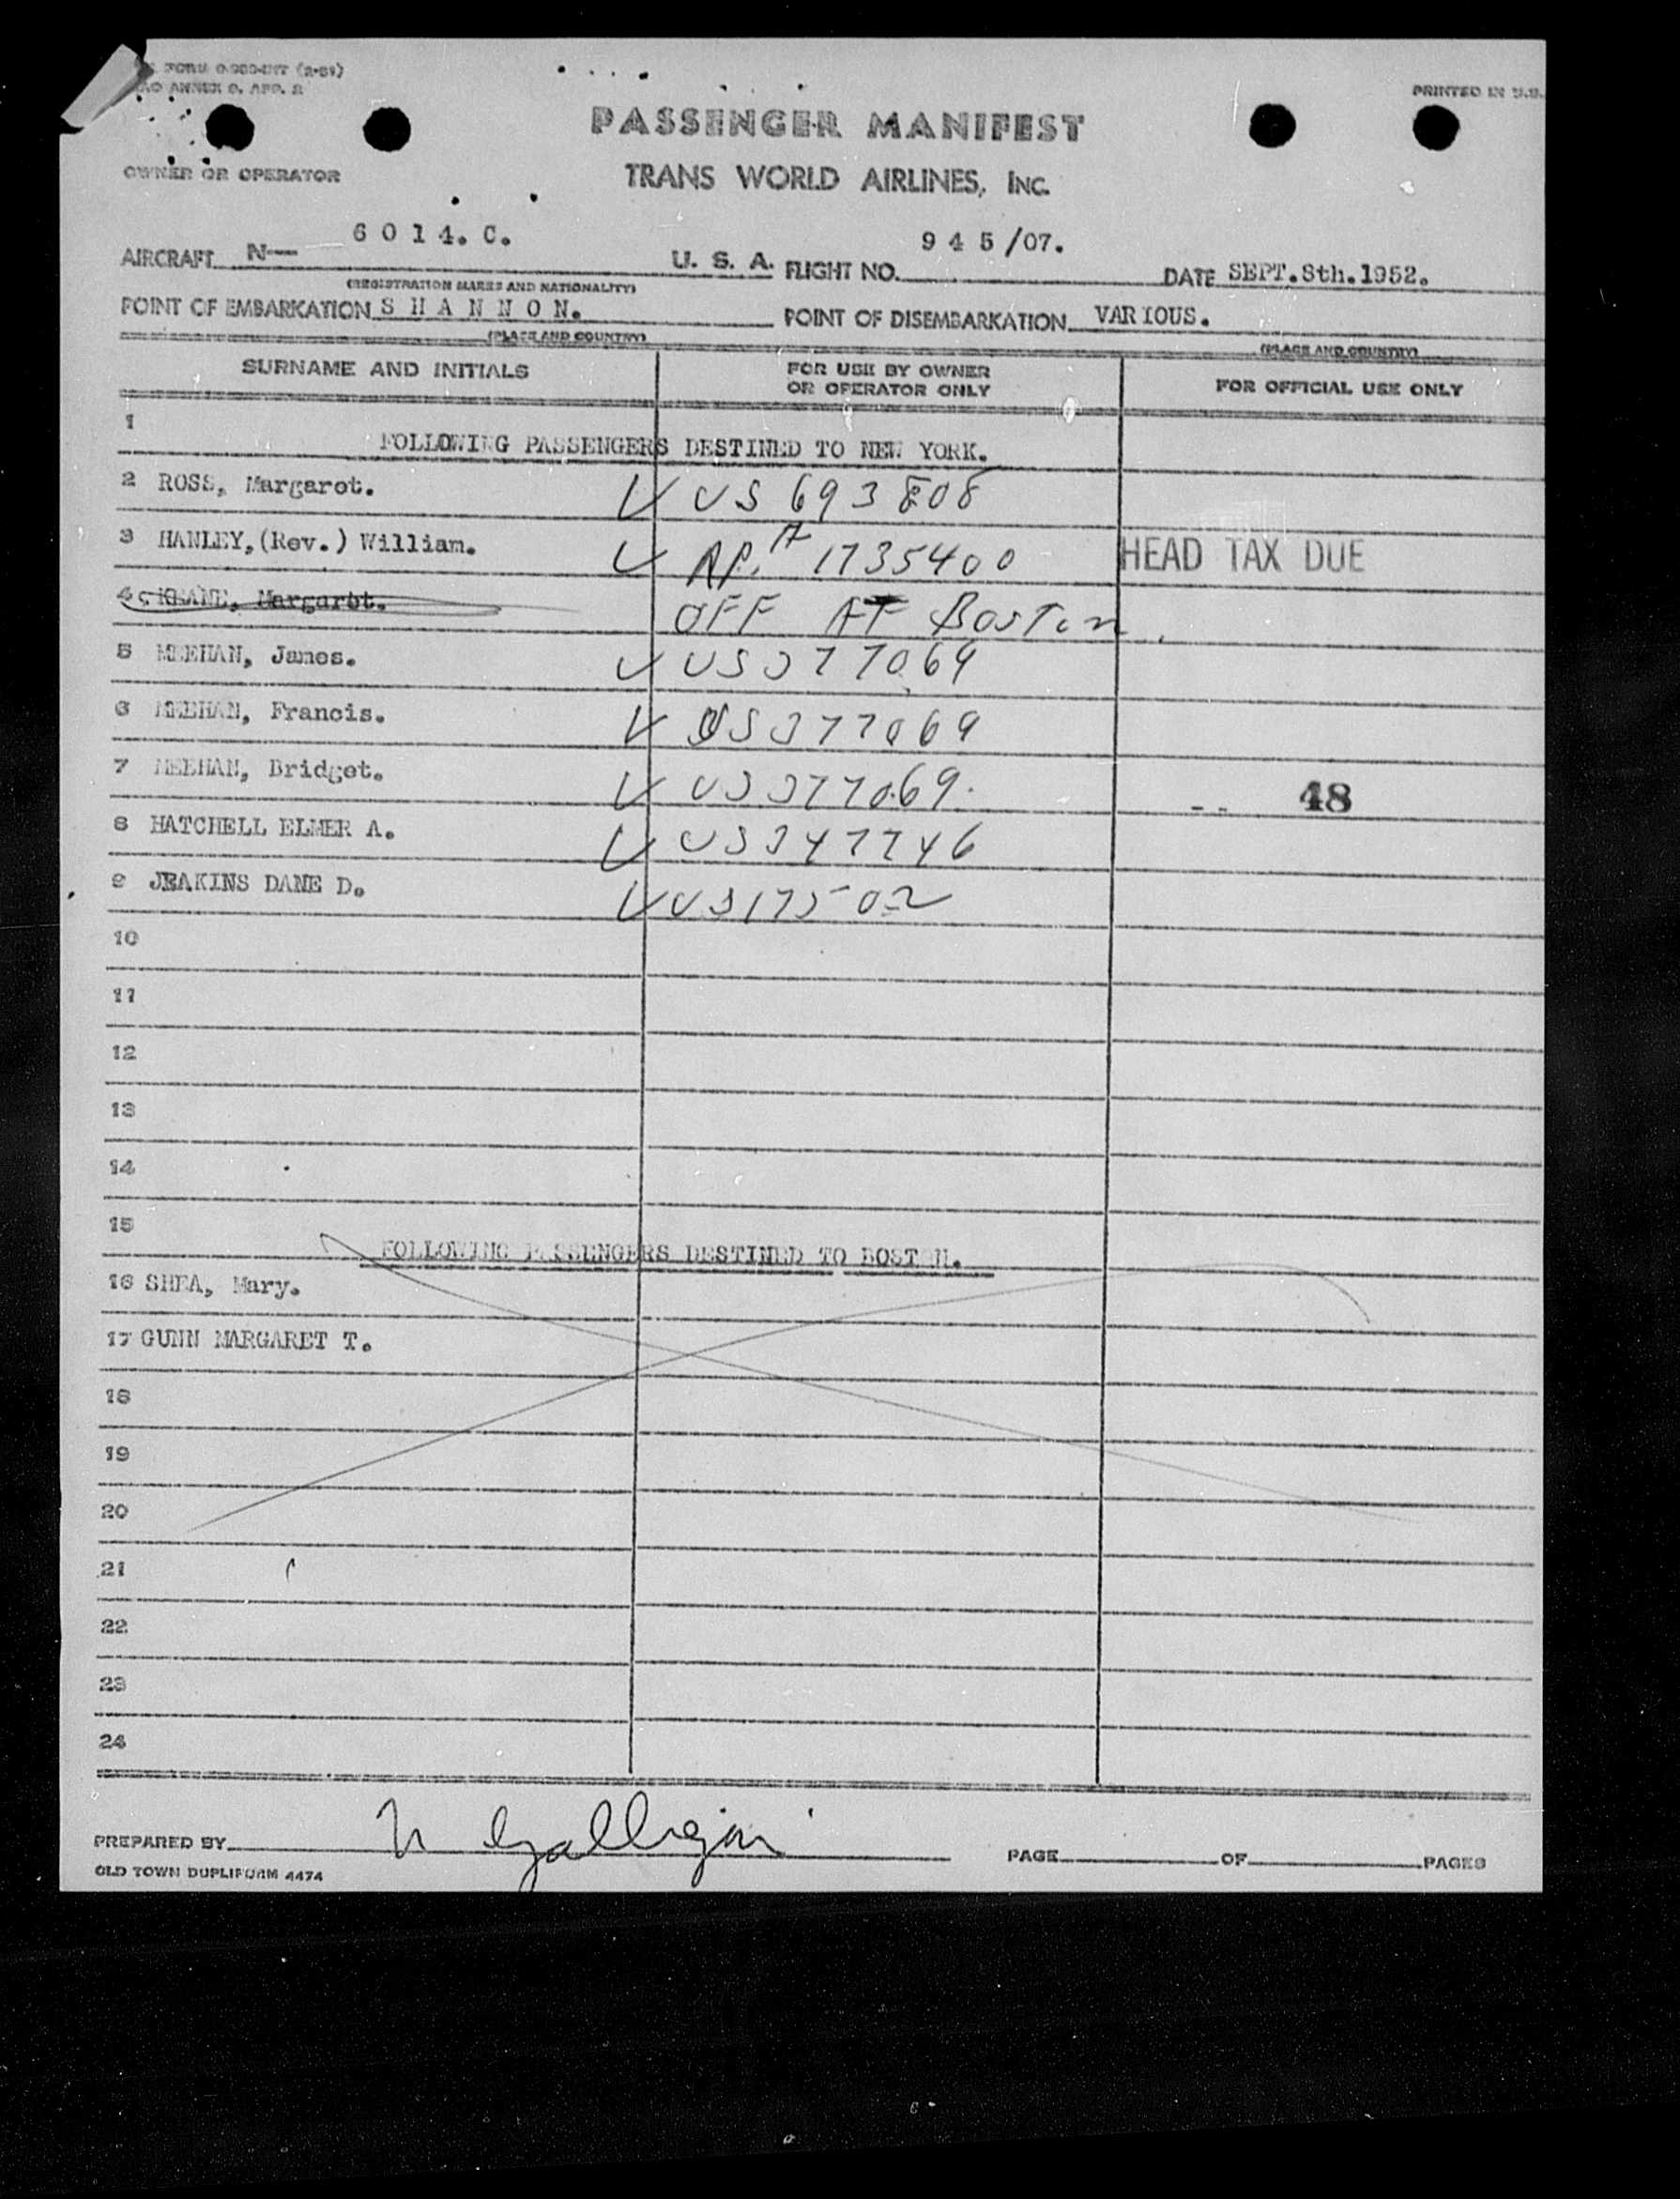 FORM
ANNEX 9, APP. 2
PRINTED IN U.S.
PASSENGER MANIFEST
OWNER OR OPERATOR
TRANS WORLD AIRLINES, INC.
AIRCRAFT N— 6 0 1 4. C. U. S. A. FLIGHT NO. 9 4 5 /07. DATE SEPT. 8th. 1952.
(REGISTRATION MARKS AND NATIONALITY)
POINT OF EMBARKATION S H A N N O N. POINT OF DISEMBARKATION VARIOUS.
(PLACE AND COUNTRY) (PLACE AND COUNTRY)
SURNAME AND INITIALS FOR USE BY OWNER OR OPERATOR ONLY FOR OFFICIAL USE ONLY
1 FOLLOWING PASSENGERS DESTINED TO NEW YORK.
2 ROSS, Margaret. US 693808
3 HANLEY, (Rev.) William. AP. A 1735400 HEAD TAX DUE
4 KEANE, Margaret. OFF AT Boston.
5 MEEHAN, James. US 377069
6 MEEHAN, Francis. US 377069
7 MEEHAN, Bridget. US 377069. -- 48
8 HATCHELL ELMER A. US 347746
9 JEAKINS DANE D. US 17502
10
11
12
13
14
15 FOLLOWING PASSENGERS DESTINED TO BOSTON.
16 SHEA, Mary.
17 GUNN MARGARET T.
18
19
20
21
22
23
24
PREPARED BY N Galligan PAGE OF PAGES
OLD TOWN DUPLIFORM 4474